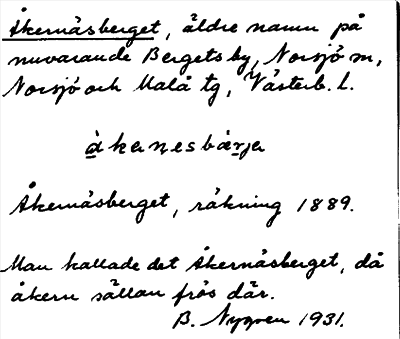 Åkernäsberget, äldre namn på
nuvarande Bergets by, Norsjö sn,
Norsjö och Malå tg, Västerb. l.
åkernesbärja
Åkernäsberget, räkning 1889.
Man kallade det Åkernäsberget, då
åkern sällan frös där.
B. Nygren 1931.